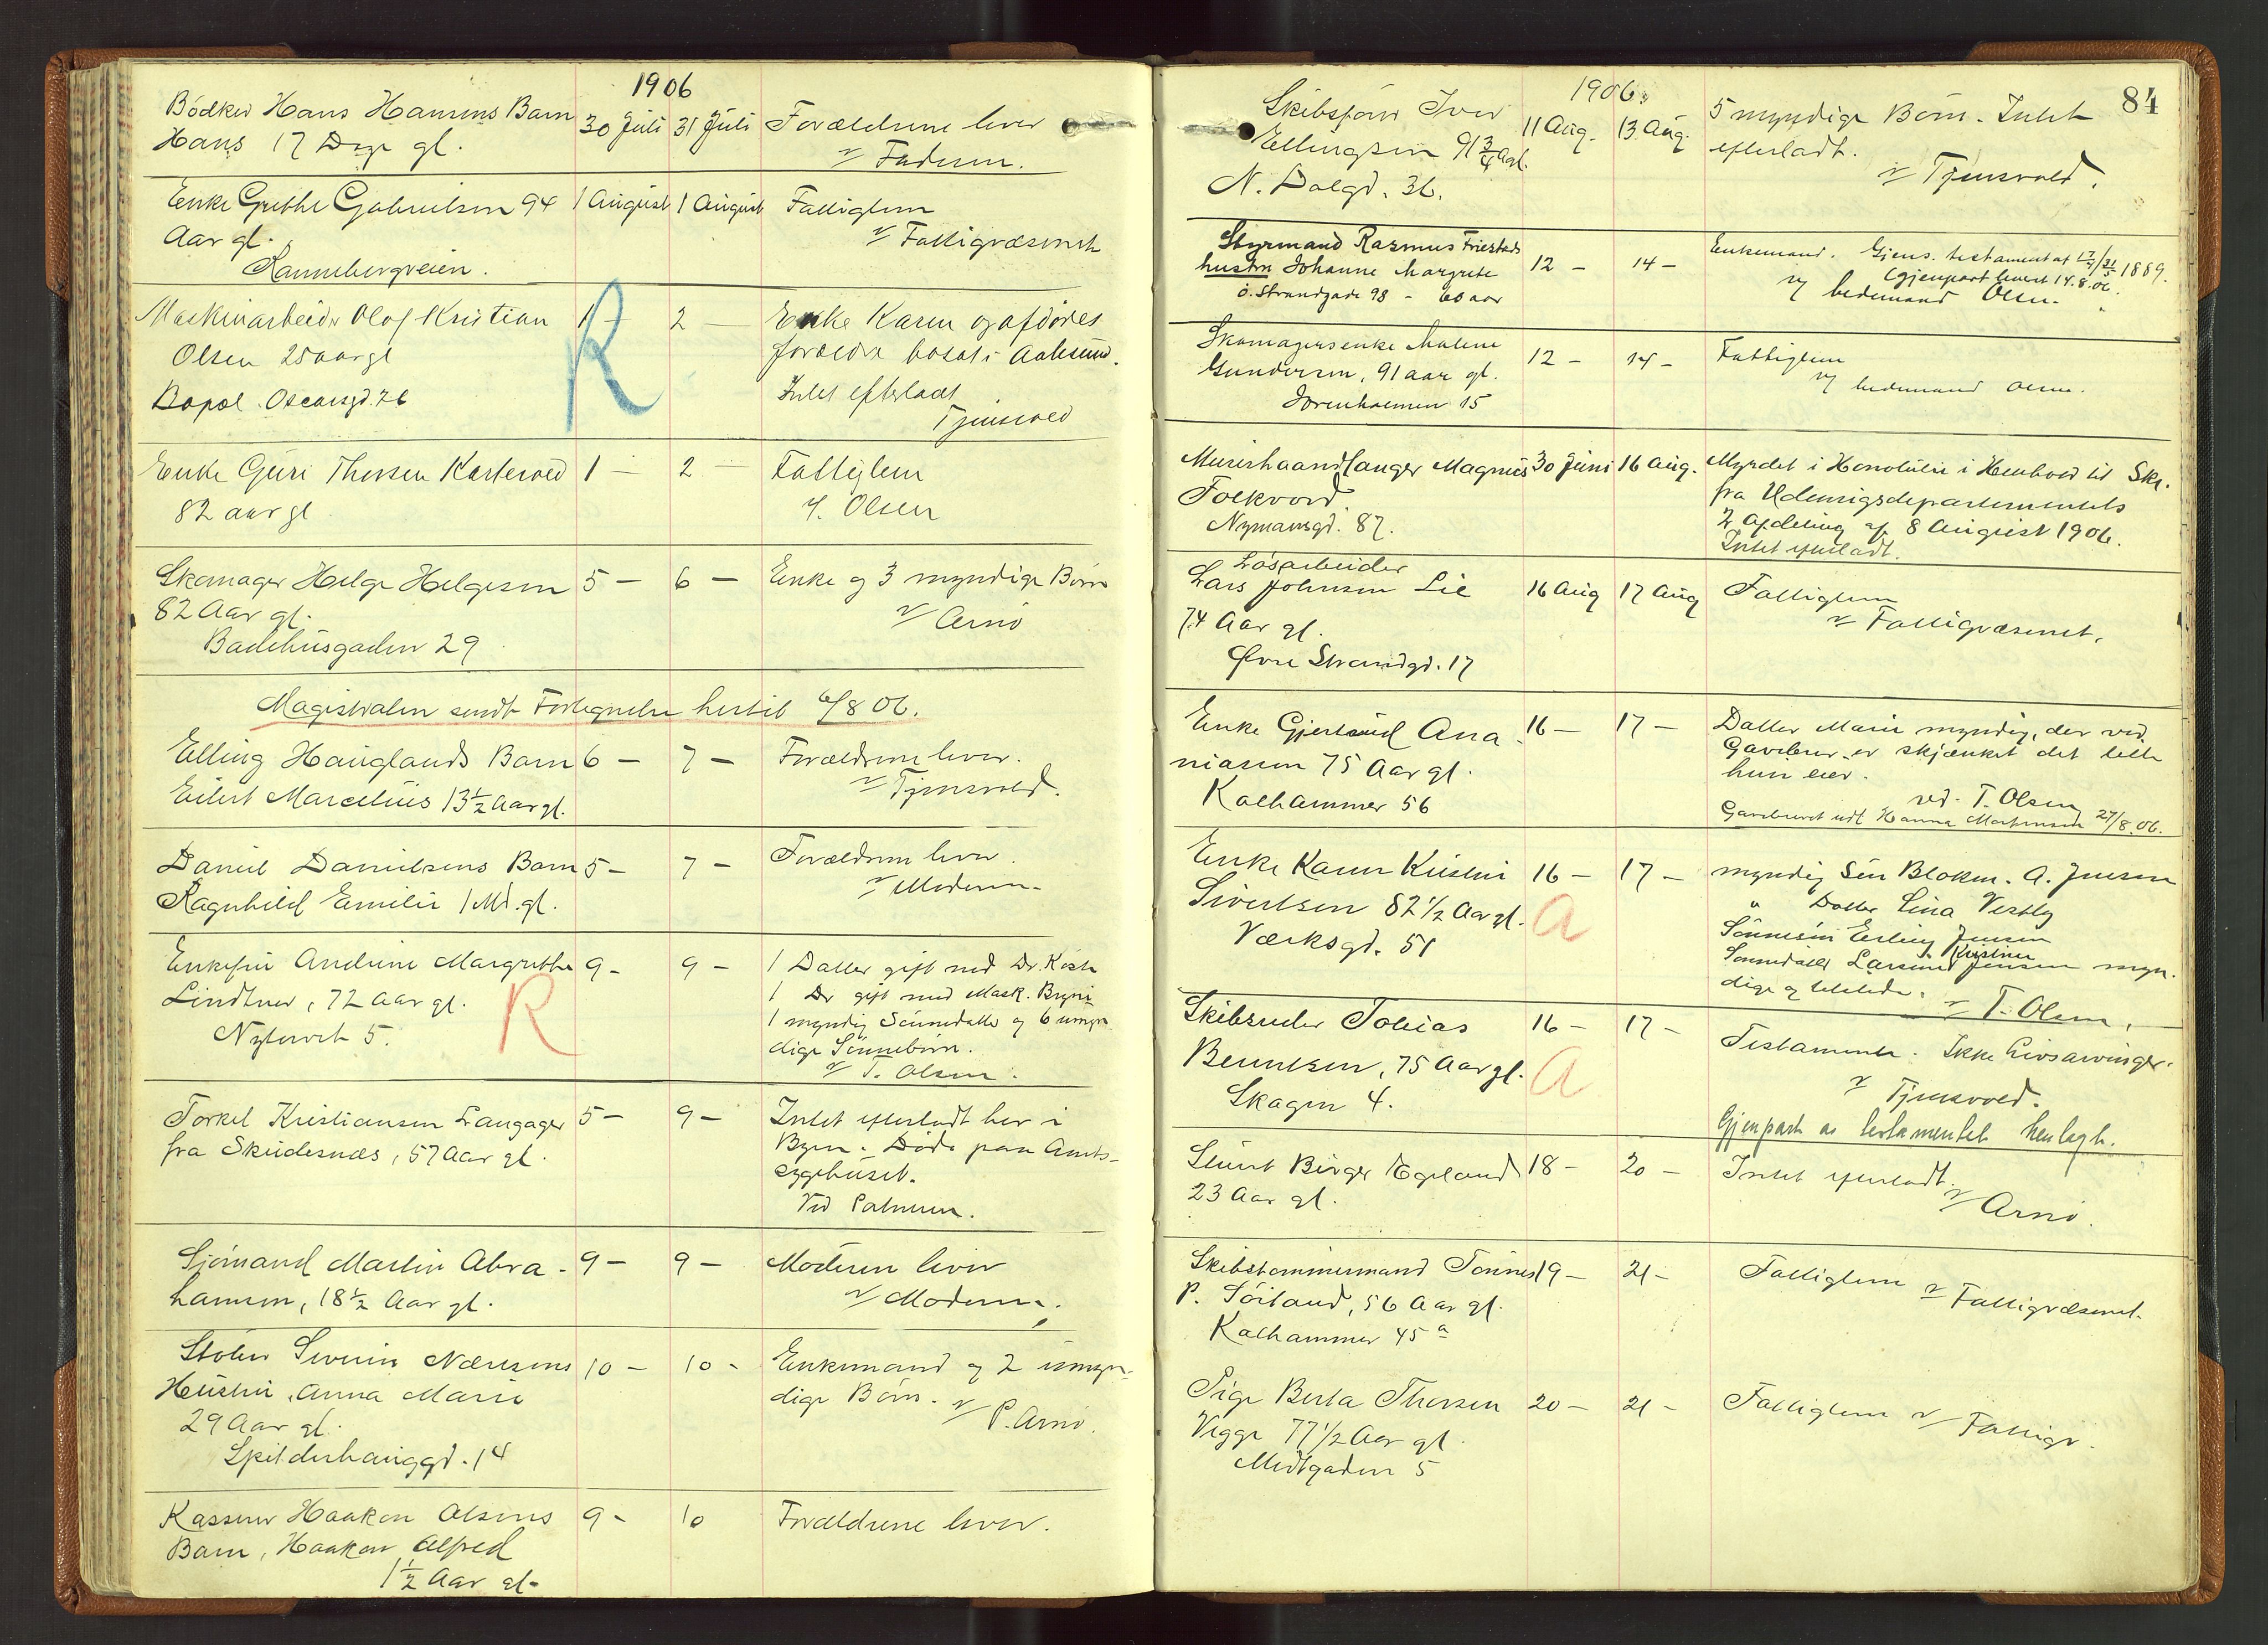 1906
Bødker Hans Hansens Barn 30 Juli 31 Juli Forældrene lever
Hans 17 Dage gl. v/ Faderen.
Enke Grethe Gabrielsen 94 1 August 1 August Fattiglem
Aar gl. v/ Fattigvæsenet
Rannebergveien.
Maskinarbeider Olaf Kristian 1 – 2 – Enke Karen og afdødes
Olsen 25 aar gl R forældre bosat i Aalesund.
Bopæl Oscarsgd. 76 Intet efterladt
Tjensvold
Enke Guri Thorsen 1 – 2 – Fattiglem
82 aar gl v. Olsen
Skomager Helge Helgesen 5 – 6 – Enke og 3 myndige Børn
82 Aar gl. v/ Arnø
Badehusgaden 29
Magistraten sendt Fortegnelse hertil 6/8 06.
Elling Hauglands Barn 6 – 7 – Forældrene lever.
Eilert Marcelius 13½ Aar gl. v/ Tjensvold.
Daniel Danielsens Barn 5 – 7 – Forældrene lever.
Ragnhild Emilie 1 Md. gl. v/ Moderen
Enkefru Andrine Margrethe 9 – 9 – 1 Datter gift med Dr.
Lindtner, 72 Aar gl. R 1 Dr gift med Mask.
Nytorvet 5. 1 myndig Sønnedatter og 6 umyn-
dige Sønnebørn.
v/ T. Olsen.
Torkel Kristiansen Langager 5 – 9 – Intet efterladt her i
fra Skudesnæs, 57 Aar gl. Byen. Døde paa Amts-
sygehuset.
Ved
Sjømand Martin Abra- 9 – 9 – Moderen lever
hamsen, 18½ Aar gl. v/ Moderen.
Støber Severin Næresens 10 – 10 – Enkemand og 2 umyn-
Hustru, Anna Marie dige Børn. v/ P. Arnø.
29 Aar gl.
Spilderhauggd. 14
Kasserer Haakon Olsens 9 – 10 Forældrene lever.
Barn, Haakon Alfred
1½ Aar gl.
1906. 84
Skibsfører Iver 11 Aug. 13 Aug. 5 myndige Børn. Intet
Ellingsen 91¾ Aar gl. efterladt.
N. Dalgd. 36. v/ Tjensvold.
Styrmand Rasmus Friestads 12 – 14 – Enkemand. Gjens. testament af 1889.
hustru Johanne Margrete (gjenpart leveret 14.8.06.
ø. Strandgade 98 – 60 aar v/ bedemand Olsen.
Skomagersenke Malene 12 – 14 – Fattiglem
Gundersen, 91 aar gl. v/ bedemand Olsen.
Jorenholmen 15
Murerhaandlanger Magnus 30 Juni 16 Aug. Myrdet i Honolulu i Henhold til Skr.
Folkvord. fra Udenrigsdepartementets
Nymansgd. 87. 2 Afdeling af 8 August 1906.
Intet efterladt.
Løsarbeider
Lars Johnsen Lie 16 Aug 17 Aug Fattiglem
74 Aar gl. v/ Fattigvæsenet.
Øvre Strandgd. 17
Enke Gjertrud Ana- 16 – 17 – Datter Marie myndig, der ved
niasen 75 Aar gl. Gavebrev er skjænket det lille
Kalhammer 56 hun eier.
ved. T. Olsen
Gavebrevet udl. Hanna 27/8.06.
Enke Karen Kristine 16 – 17 – myndig Søn Blokm. A. Jensen
Sivertsen 82½ Aar gl. A " Datter Lina Vestly
Værksgd. 51 Sønnesøn Erling Jensen
Kristine
Sønnedatter Jensen myn-
dige og tilstede. v/ T. Olsen.
Skibsreder Tobias 16 – 17 – Testamente. Ikke Livsarvinger.
Berentsen, 75 Aar gl. A v/ Tjensvold.
Skagen 4.
Gjenpart av testamentet henlagt.
Birger Egeland 18 – 20 – Intet efterladt.
23 Aar gl. v/ Arnø.
Skibstømmermand Tønnes 19 – 21 – Fattiglem v/ Fattigvæsenet.
P. Søiland, 56 Aar gl.
Kalhammer 45 a
Pige Berta Thorsen 20 – 21 – Fattiglem v/ Fattigv.
Vigge 77½ Aar gl.
Midtgaden 5